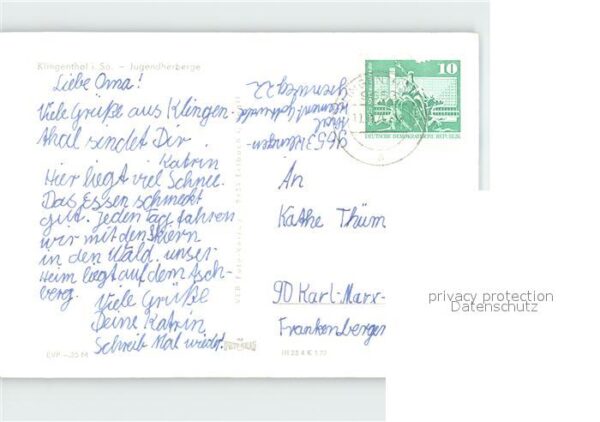 Klingenthal i. Sa. - Jugendherberge
Liebe Oma!
Viele Grüße aus Klingen-
thal sendet Dir
Katrin
Hier liegt viel Schnee.
Das Essen schmeckt
gut. Jeden Tag fahren
wir mit den Skiern
in den Wald. unser
Heim liegt auf dem Asch-
berg.
Viele Grüße
Deine Katrin
Schreib Mal wieder!
EVP
9653 Klingen-
thal
10
DEUTSCHE DEMOKRATISCHE REPUBLIK
An
Käthe Thüm
90 Karl-Marx-
Frankenberger
privacy protection
Datenschutz